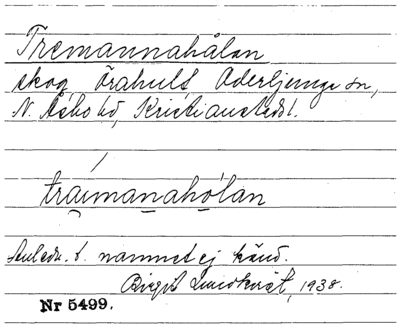 Tremannahålan
skog, Örahult, Oderljunga sn,
N. Åsbo hd, Kristianstads l.
traimanahólan
Anledn. t. namnet ej känd.
Birgit Lundkvist, 1938.
Nr 5499.